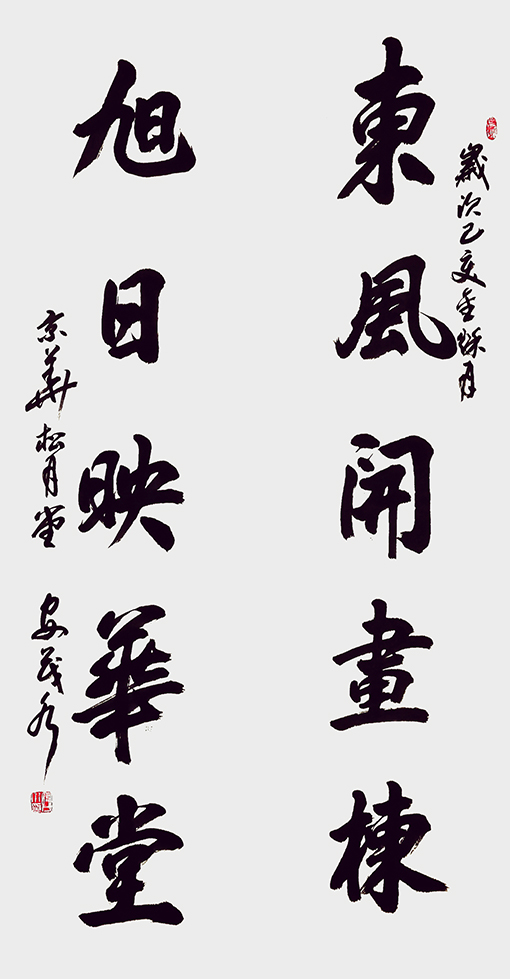 歲次己亥金秋月
東風開畫棟
旭日映華堂
京華松月堂
安茂秀